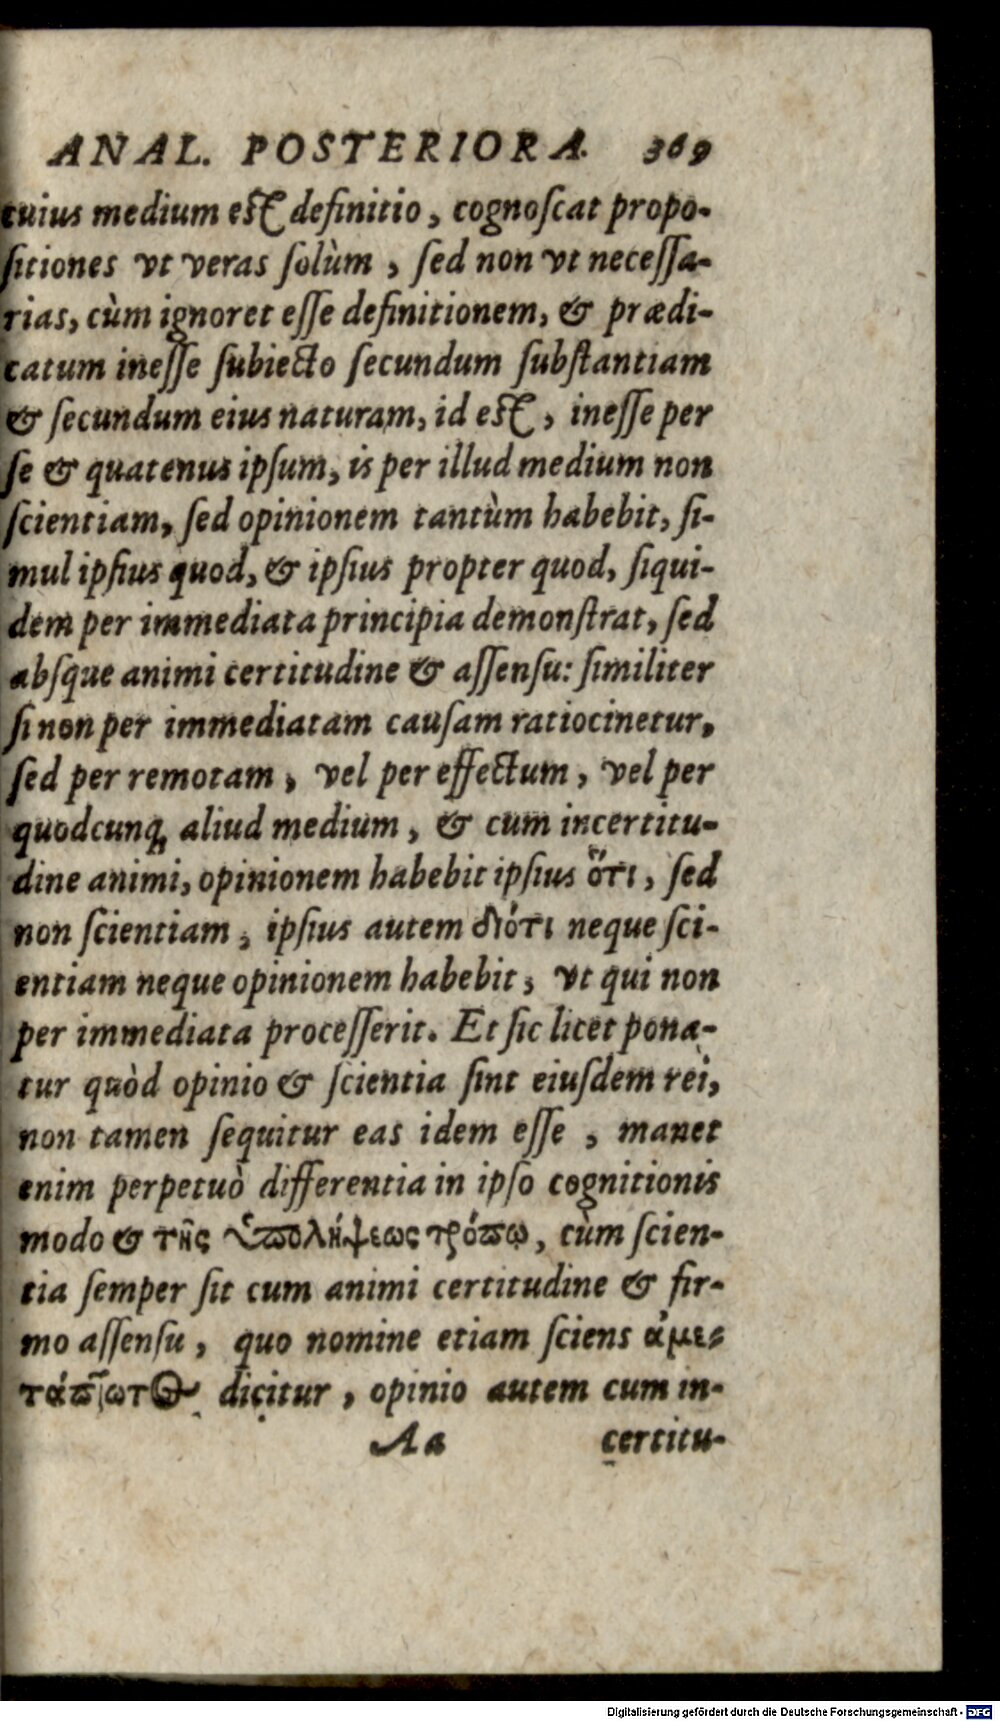 ANAL. POSTERIORA. 369
cuius medium est definitio, cognoſcat propo-
ſitiones vt veras ſolùm, ſed non vt neceſſa-
rias, cùm ignoret eſſe definitionem, & prædi-
catum ineſſe ſubiecto ſecundum ſubſtantiam
& ſecundum eius naturam, id est, ineſſe per
ſe & quatenus ipſum, is per illud medium non
ſcientiam, ſed opinionem tantùm habebit, ſi-
mul ipſius quod, & ipſius propter quod, ſiqui-
dem per immediata principia demonſtrat, ſed
abſque animi certitudine & aſſenſu: ſimiliter
ſi non per immediatam cauſam ratiocinetur,
ſed per remotam, vel per effectum, vel per
quodcunq; aliud medium, & cum incertitu-
dine animi, opinionem habebit ipſius ὅτι, ſed
non ſcientiam, ipſius autem διότι neque ſci-
entiam neque opinionem habebit, vt qui non
per immediata proceſſerit. Et ſic licet pona-
tur quòd opinio & ſcientia ſint eiuſdem rei,
non tamen ſequitur eas idem eſſe, manet
enim perpetuò differentia in ipſo cognitionis
modo & τῆς ὑπολήψεως τρόπῳ, cùm ſcien-
tia ſemper ſit cum animi certitudine & fir-
mo aſſenſu, quo nomine etiam ſciens ἀμε-
τάπτωτος dicitur, opinio autem cum in-
Aa certitu-
Digitalisierung gefördert durch die Deutsche Forschungsgemeinschaft - DFG